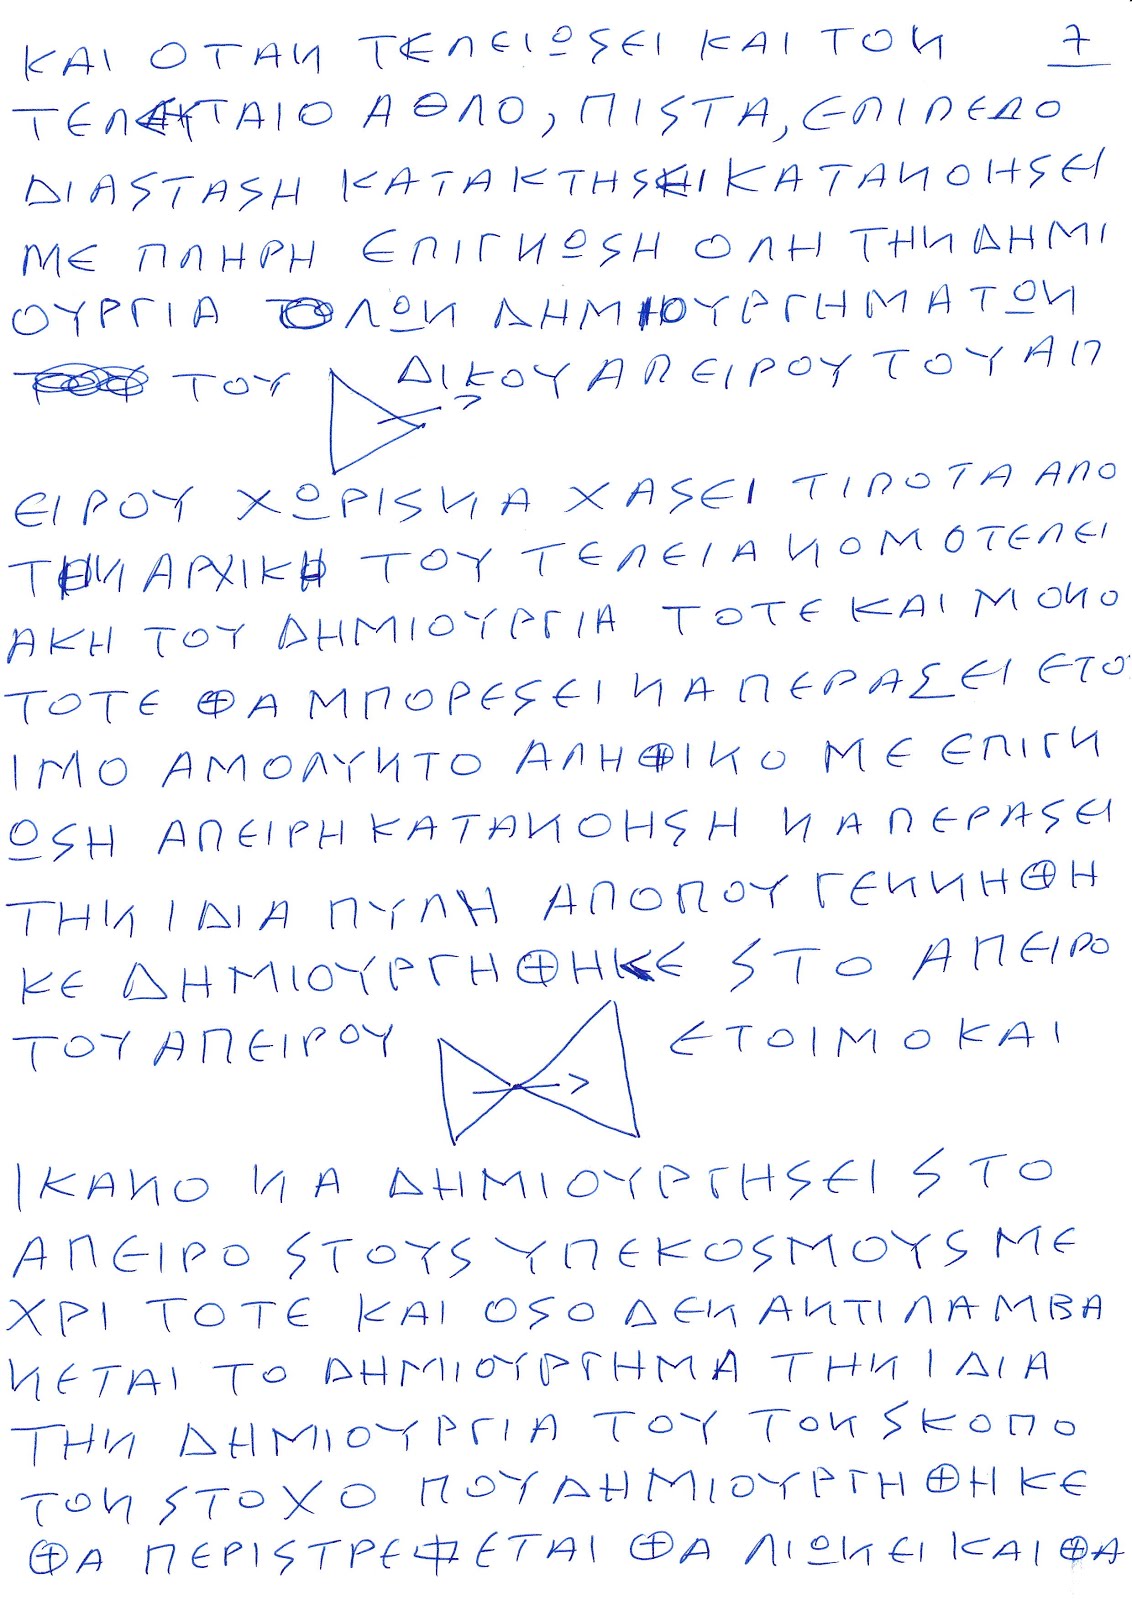 ΚΑΙ ΟΤΑΝ ΤΕΛΕΙΩΣΕΙ ΚΑΙ ΤΟΝ 7
ΤΕΛΕΥΤΑΙΟ ΑΘΛΟ, ΠΙΣΤΑ, ΕΠΙΠΕΔΟ
ΔΙΑΣΤΑΣΗ ΚΑΤΑΚΤΗΣΕΙ ΚΑΤΑΝΟΗΣΕΙ
ΜΕ ΠΛΗΡΗ ΕΠΙΓΝΩΣΗ ΟΛΗ ΤΗΝ ΔΗΜΙ
ΟΥΡΓΙΑ ΟΛΩΝ ΔΗΜΙΟΥΡΓΗΜΑΤΩΝ
ΤΟΥ ΔΙΚΟΥ ΑΠΕΙΡΟΥ ΤΟΥ ΑΠ
ΕΙΡΟΥ ΧΩΡΙΣ ΝΑ ΧΑΣΕΙ ΤΙΠΟΤΑ ΑΠΟ
ΤΗΝ ΑΡΧΙΚΗ ΤΟΥ ΤΕΛΕΙΑ ΝΟΜΟΤΕΛΕΙ
ΑΚΗ ΤΟΥ ΔΗΜΙΟΥΡΓΙΑ ΤΟΤΕ ΚΑΙ ΜΟΝΟ
ΤΟΤΕ ΘΑ ΜΠΟΡΕΣΕΙ ΝΑ ΠΕΡΑΣΕΙ ΕΤΟ
ΙΜΟ ΑΜΟΛΥΝΤΟ ΑΛΗΘΙΝΟ ΜΕ ΕΠΙΓΝ
ΩΣΗ ΑΠΕΙΡΗ ΚΑΤΑΝΟΗΣΗ ΝΑ ΠΕΡΑΣΕΙ
ΤΗΝ ΙΔΙΑ ΠΥΛΗ ΑΠΟΠΟΥ ΓΕΝΝΗΘΗ
ΚΕ ΔΗΜΙΟΥΡΓΗΘΗΚΕ ΣΤΟ ΑΠΕΙΡΟ
ΤΟΥ ΑΠΕΙΡΟΥ ΕΤΟΙΜΟ ΚΑΙ
ΙΚΑΝΟ ΝΑ ΔΗΜΙΟΥΡΓΗΣΕΙ ΣΤΟ
ΑΠΕΙΡΟ ΣΤΟΥΣ ΥΠΕΚΟΣΜΟΥΣ ΜΕ
ΧΡΙ ΤΟΤΕ ΚΑΙ ΟΣΟ ΔΕΝ ΑΝΤΙΛΑΜΒΑ
ΝΕΤΑΙ ΤΟ ΔΗΜΙΟΥΡΓΗΜΑ ΤΗΝ ΙΔΙΑ
ΤΗΝ ΔΗΜΙΟΥΡΓΙΑ ΤΟΥ ΤΟΝ ΣΚΟΠΟ
ΤΟΝ ΣΤΟΧΟ ΠΟΥ ΔΗΜΙΟΥΡΓΗΘΗΚΕ
ΘΑ ΠΕΡΙΣΤΡΕΦΕΤΑΙ ΘΑ ΛΙΩΝΕΙ ΚΑΙ ΘΑ